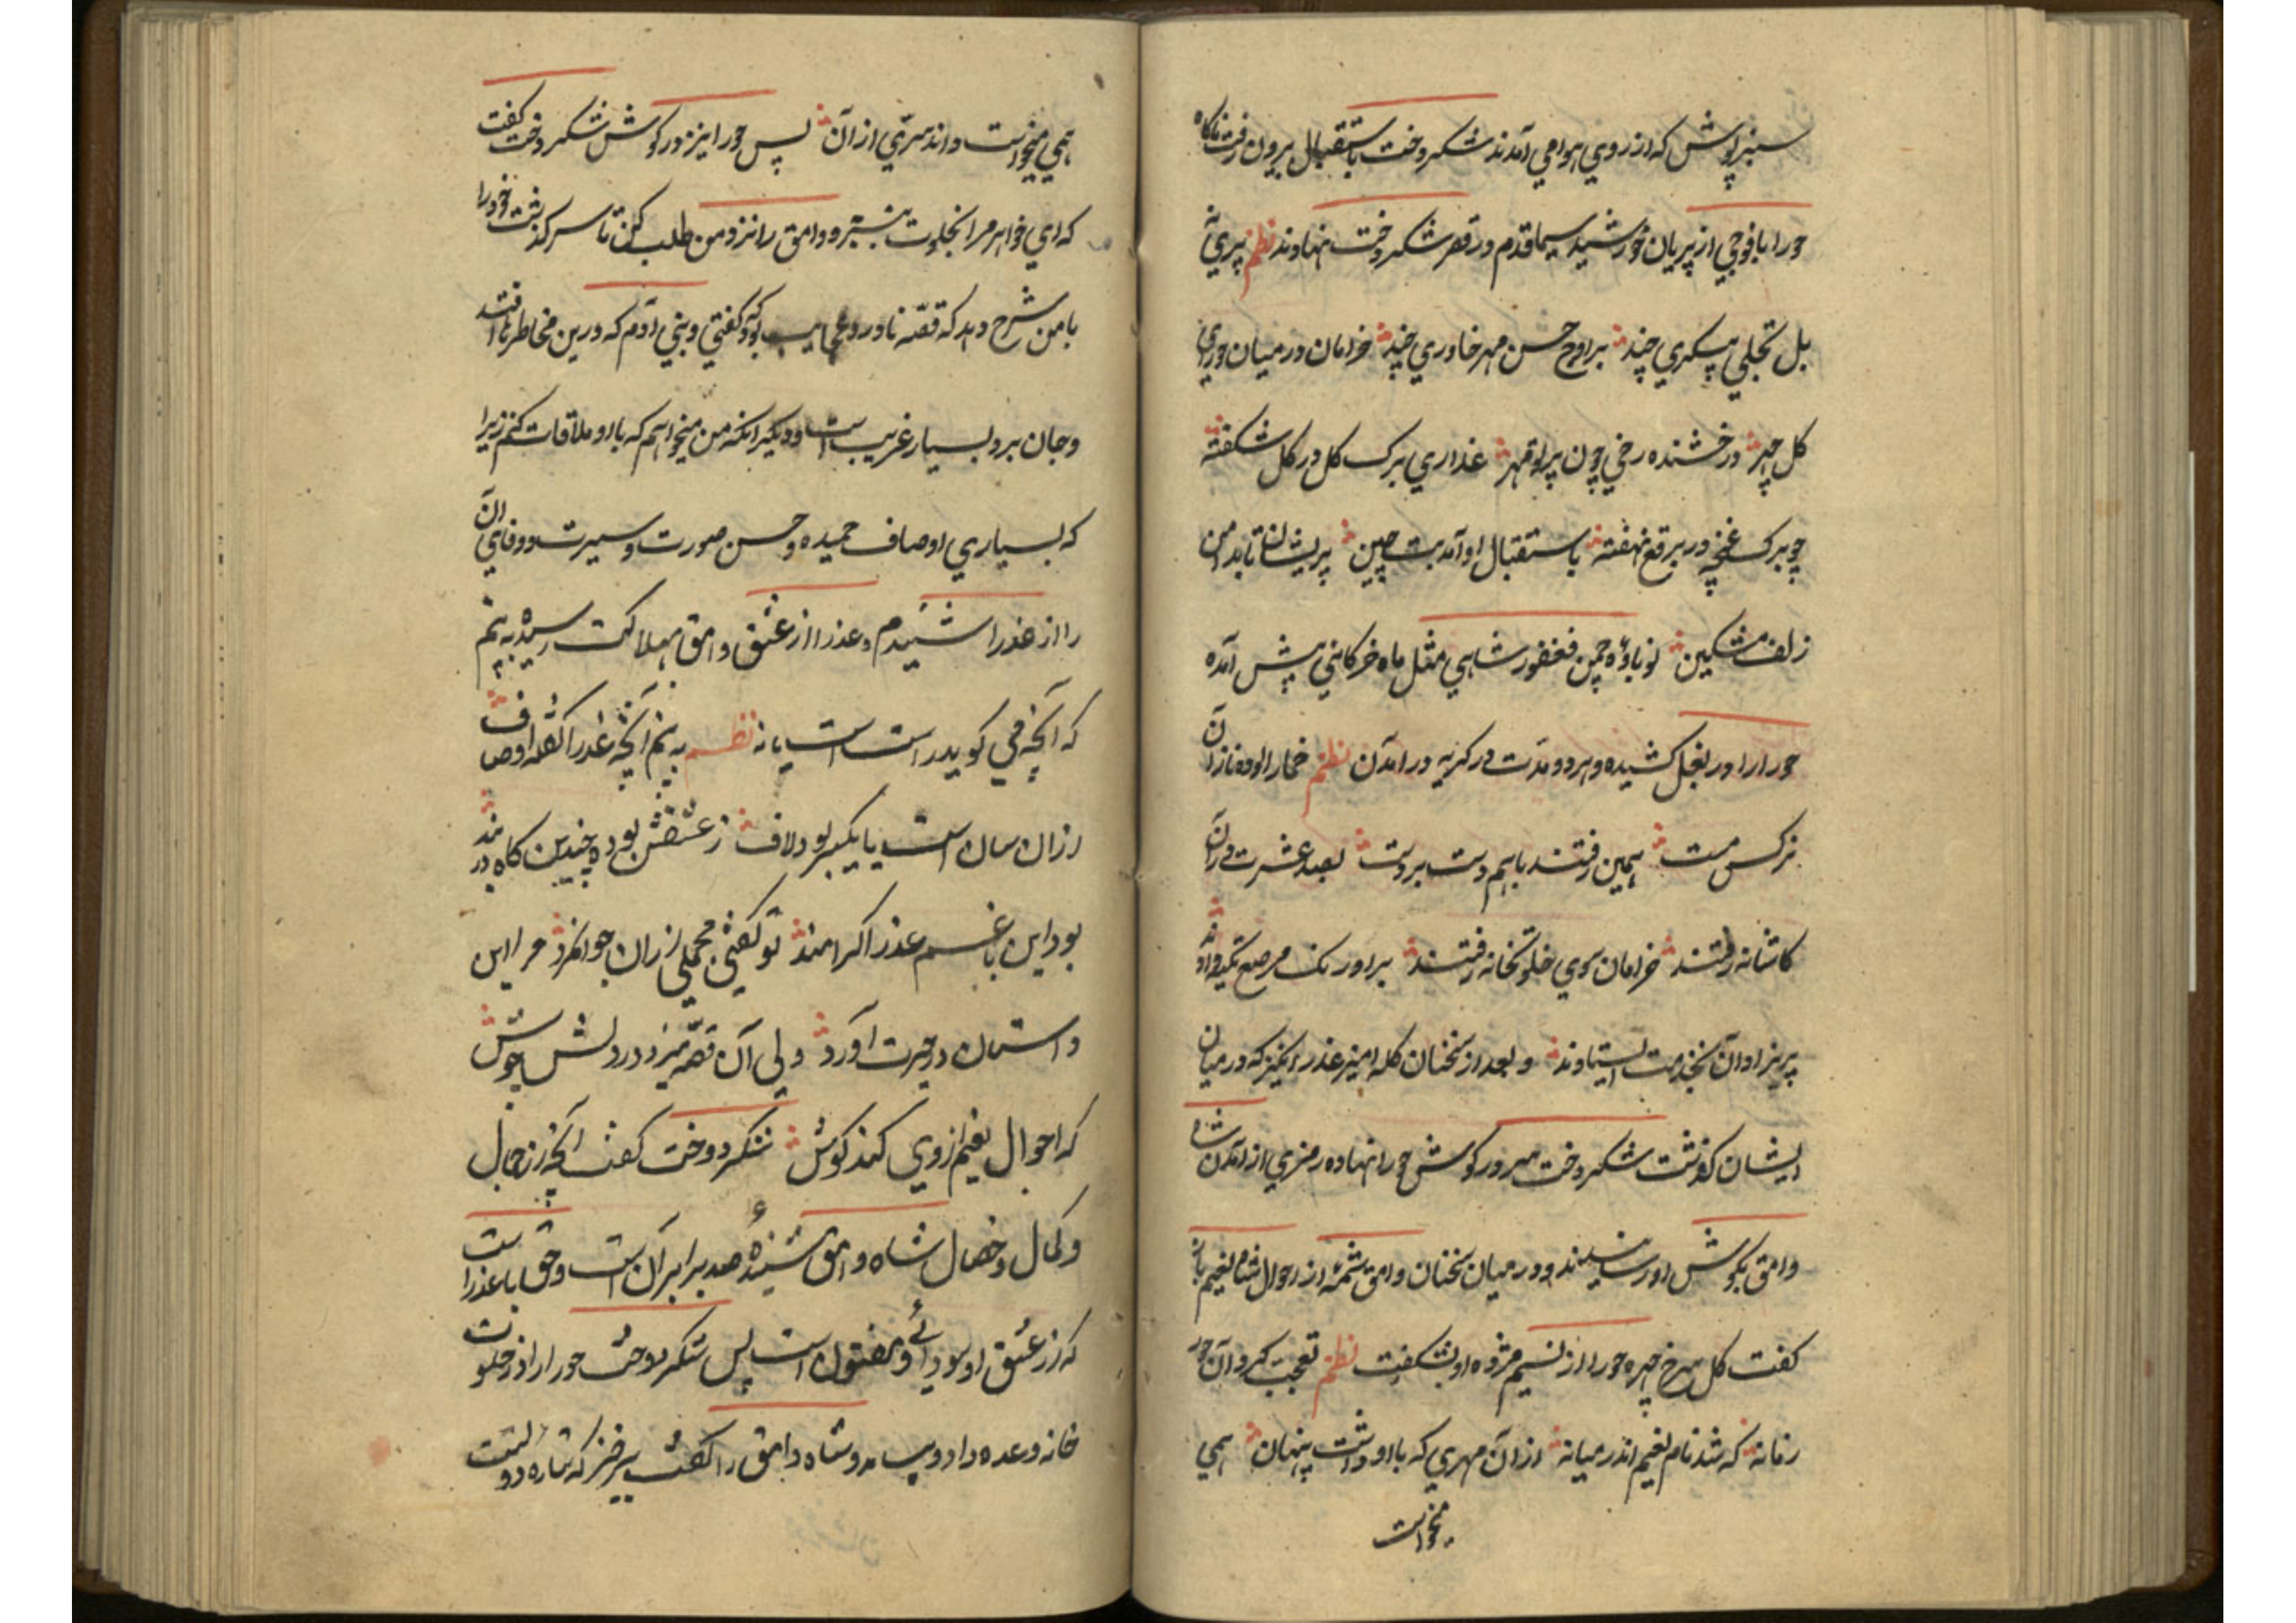 سبزپوش که از روی هوا می آمدند شکردخت باستقبال بیرون رفت ناکاه
حورا با فوجی از پریان خورشید سیما قدم در قصر شکردخت نهادند نظم پری نه
بل تجلی پیکری چند بر اوج حسن مهر خاوری چند خرامان در میان حورای
کل چهر درخشنده رخی چون پرتو مهر عذاری برک کل در کل شکفته
چو برک غنچه در برقع نهفته باستقبال او آمد بت چین پریشان تا بدامن
زلف مشکین نوباوهٔ چمن فغفور شاهی مثل ماه خرکاهی پیش آمده
حورا را در بغل کشیده و هر دو مدت در کریه در آمدن نظم خمار آلوده نازان
نرکس مست همین رفتند باهم دست بر دست بصد عشرت در آن
کاشانه رفتند خرامان سوی خلوتخانه رفتند بر اورنک مرصع تکیه داده
پریزادان بخدمت ایستادند و بعد از سخنان کله امیز عذر انکیز که در میان
ایشان کذشت شکردخت سر در کوش حورا نهاده رمزی از آمدن شاه
وامق بکوش او رسانید و در میان سخنان وامق شمهٔ از احوال شاه نعیم باز
کفت کل سرخ چهره حورا از نسیم مژده او بشکفت نظم تعجب کرد آن حور
زمانه که شد نام نعیم اندر میانه از آن مهری که با او داشت پنهان همی
میخواست
همی میخواست داند سری از آن پس حورا نیز در کوش شکردخت کفت
که ای خواهر مرا بخلوت ببر و وامق را نزد من طلب کن تا سرکذشت خود را
با من شرح دهد که قصهٔ نادر و عجایب بود که کفتی و بنی آدم که درین مخاطره افتد
و جان برد بسیار غریب است و دیکر انکه من میخواهم که با او ملاقات کنم زیرا
که بسیاری اوصاف حمیده و حسن صورت و سیرت و وفای آن
را از عذرا شنیدم و عذرا از عشق وامق بهلاکت رسیده ببینم
که آنچه می کوید راست است یا نه نظم ببینم آنچه عذرا کفته اوصاف
ازان سان است یا یکسر بود لاف ز عشقش بوده چندین کاه در بند
بود این با غم عذرا کرامند تو کفتی مجملی زان جوانمرد مرا این
داستان در حیرت آورد ولی آن قصه میزد در دلش جوش
که احوال نعیم از وی کند کوش شکردوخت کفت آنچه از جمال
و کمال و خصال شاه وامق شنیدهٔ صد برابر آن است و حق با عذرا است
که از عشق او سودائی و مفتون است پس شکردوخت حورا را در خلوت
خانه وعده داد و بیامد و شاه وامق را کفت برخیز که ستاره دولت